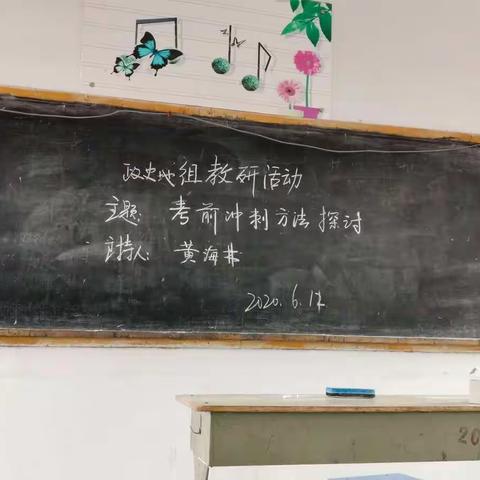 政史地组教研活动
主题: 考前冲刺方法探讨
主持人: 黄海
2020.6.
20